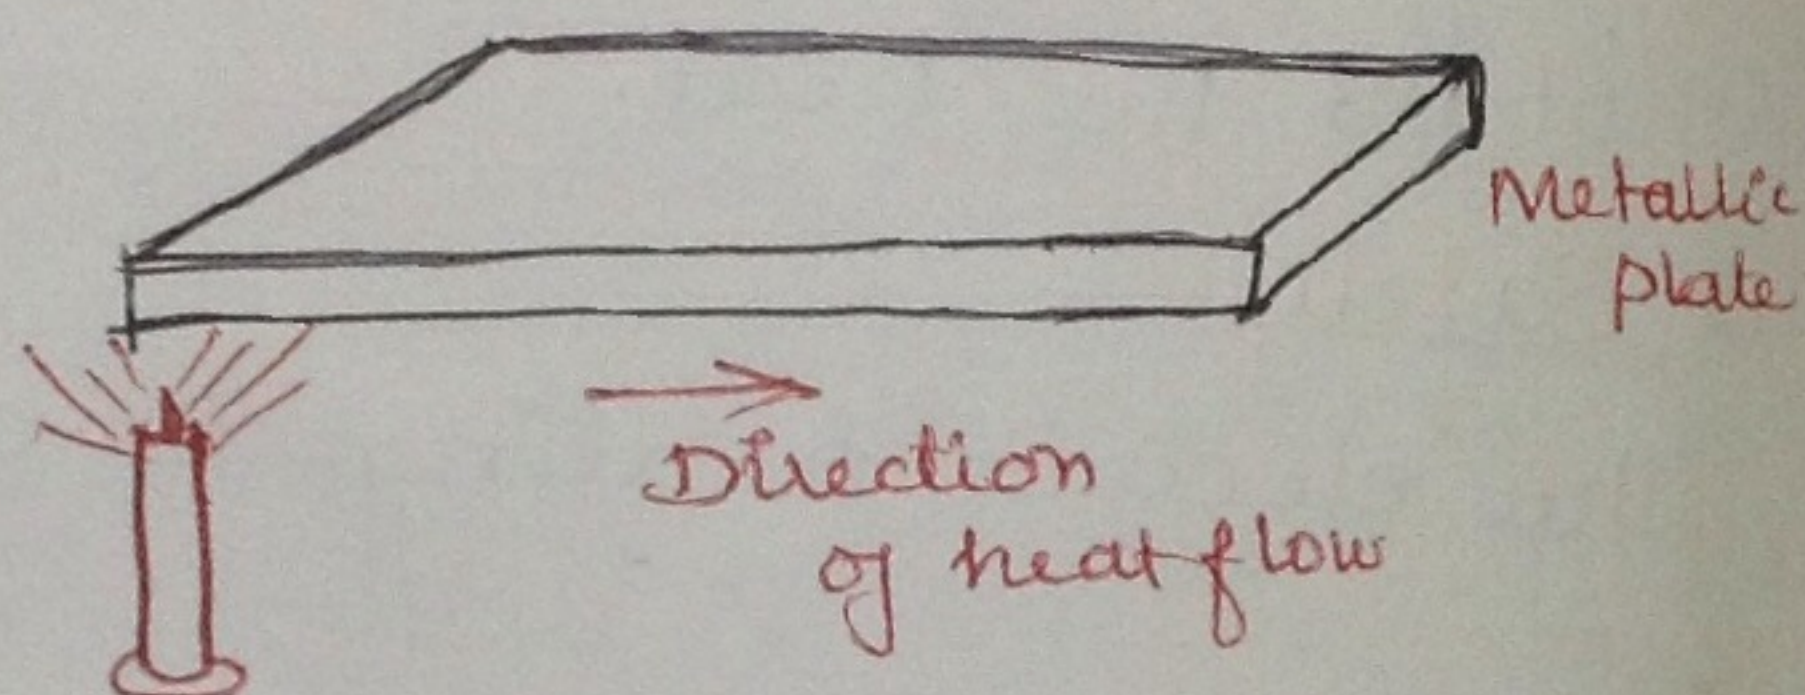 Metallic
plate
Direction
of heat flow